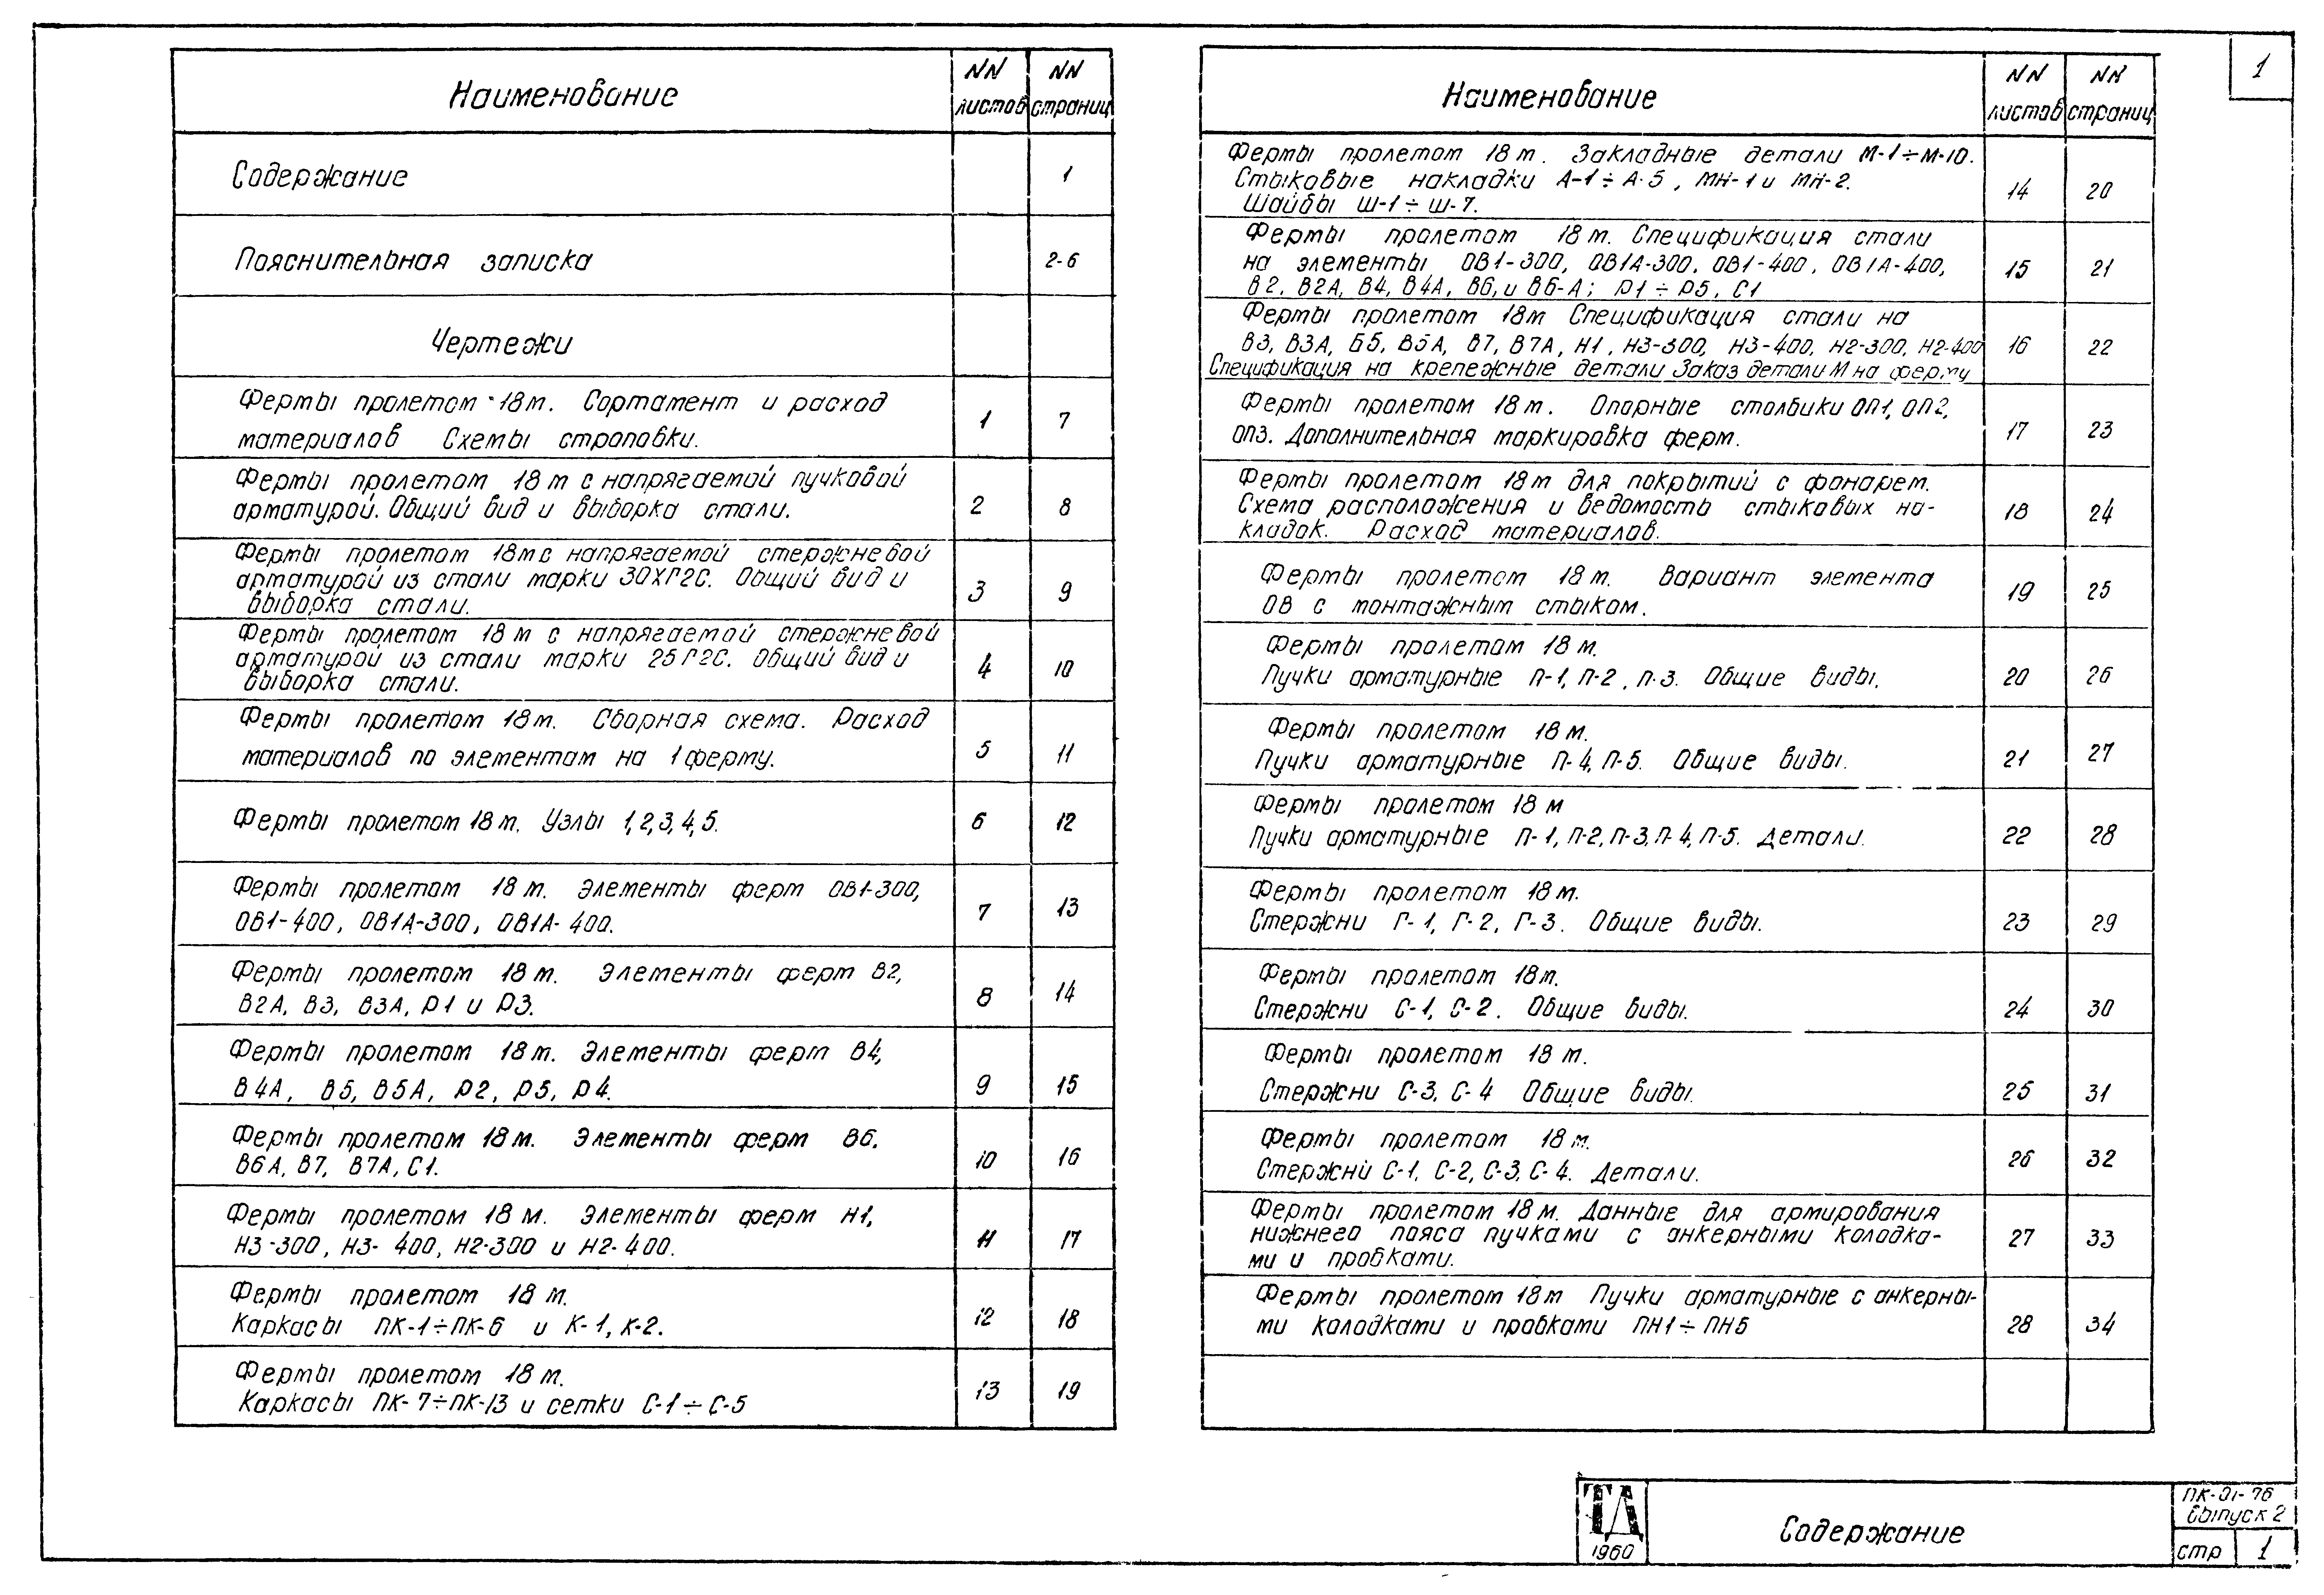 1
Наименование NN листов NN страниц
Содержание 1
Пояснительная записка 2-6
Чертежи
Фермы пролетом 18м. Сортамент и расход
материалов Схемы строповки. 1 7
Фермы пролетом 18 м с напрягаемой пучковой
арматурой. Общий вид и выборка стали. 2 8
Фермы пролетом 18м с напрягаемой стержневой
арматурой из стали марки 30ХГ2С. Общий вид и
выборка стали. 3 9
Фермы пролетом 18 м с напрягаемой стержневой
арматурой из стали марки 25Г2С. Общий вид и
выборка стали. 4 10
Фермы пролетом 18м. Сборная схема. Расход
материалов по элементам на 1 ферму. 5 11
Фермы пролетом 18 м. Узлы 1,2,3,4,5. 6 12
Фермы пролетом 18 м. Элементы ферм ОВ1-300,
ОВ1-400, ОВ1А-300, ОВ1А-400. 7 13
Фермы пролетом 18 м. Элементы ферм В2,
В2А, В3, В3А, Р1 и Р3. 8 14
Фермы пролетом 18 м. Элементы ферм В4,
В4А, В5, В5А, Р2, Р5, Р4. 9 15
Фермы пролетом 18 м. Элементы ферм В6.
В6А, В7, В7А, С1. 10 16
Фермы пролетом 18 м. Элементы ферм Н1,
Н3-300, Н3-400, Н2-300 и Н2-400. 11 17
Фермы пролетом 18 м.
Каркасы ПК-1÷ПК-6 и К-1, К-2. 12 18
Фермы пролетом 18 м.
Каркасы ПК-7÷ПК-13 и сетки С-1÷С-5 13 19
Наименование NN листов NN страниц
Фермы пролетом 18 м. Закладные детали М-1÷М-10.
Стыковые накладки А-1÷А-5, МН-1 и МН-2.
Шайбы Ш-1÷Ш-7. 14 20
Фермы пролетом 18 м. Спецификация стали
на элементы ОВ1-300, ОВ1А-300, ОВ1-400, ОВ1А-400,
В2, В2А, В4, В4А, В6, и В6-А; Р1÷Р5, С1 15 21
Фермы пролетом 18м Спецификация стали на
В3, В3А, Б5, В5А, В7, В7А, Н1, Н3-300, Н3-400, Н2-300, Н2-400
Спецификация на крепежные детали Заказ детали М на ферму 16 22
Фермы пролетом 18 м. Опорные столбики ОП1, ОП2,
ОП3. Дополнительная маркировка ферм. 17 23
Фермы пролетом 18м для покрытий с фонарем.
Схема расположения и ведомость стыковых на-
кладок. Расход материалов. 18 24
Фермы пролетом 18 м. Вариант элемента
ОВ с монтажным стыком. 19 25
Фермы пролетом 18 м.
Пучки арматурные П-1, П-2, П-3. Общие виды. 20 26
Фермы пролетом 18 м.
Пучки арматурные П-4, П-5. Общие виды. 21 27
Фермы пролетом 18 м
Пучки арматурные П-1, П-2, П-3, П-4, П-5. Детали. 22 28
Фермы пролетом 18 м.
Стержни Г-1, Г-2, Г-3. Общие виды. 23 29
Фермы пролетом 18м.
Стержни С-1, С-2. Общие виды. 24 30
Фермы пролетом 18 м.
Стержни С-3, С-4 Общие виды. 25 31
Фермы пролетом 18 м.
Стержни С-1, С-2, С-3, С-4. Детали. 26 32
Фермы пролетом 18 м. Данные для армирования
нижнего пояса пучками с анкерными колодка-
ми и пробками. 27 33
Фермы пролетом 18м Пучки арматурные с анкерны-
ми колодками и пробками ПН1÷ПН5 28 34
ТД
1960
Содержание
ПК-01-76
Выпуск 2
стр 1